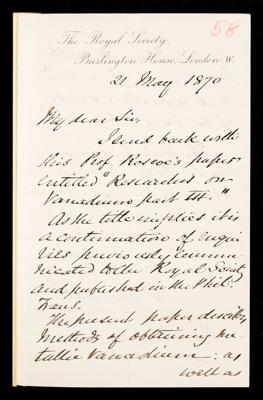 58
The Royal Society,
Burlington House, London. W.
21 May 1870
My dear Sir,
I send back with
this Prof. Roscoe's paper
entitled "Researches on
Vanadium part III."
As the title implies it is
a continuation of enqui
ries previously commu-
nicated to the Royal Society
and published in the Phil.
Trans.
The present paper describes
Methods of obtaining me-
tallic Vanadium: as
well as